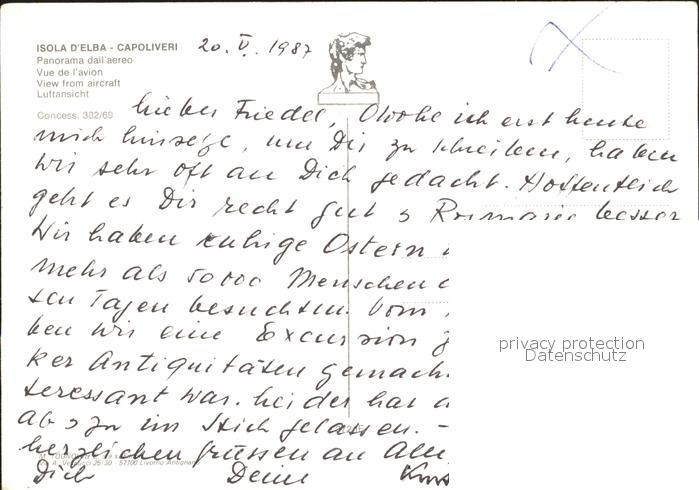 ISOLA D'ELBA - CAPOLIVERI
20. V. 1987
Panorama dall'aereo
Vue de l'avion
View from aircraft
Luftansicht
Concess. 302/69
Lieber Friedel, Obwohl ich erst heute
mich hinsetze, um Dir zu schreiben, haben
wir sehr oft an Dich gedacht. Hoffentlich
geht es Dir recht gut & Rosmarie besser
Wir haben ruhige Ostern
mehr als 50000 Menschen
sen Tagen besuchten. Vom
ben wir eine Excursion
ker Antiquitäten gemach
teressant war. Leider hat
ab & zu im Stich gelassen. -
herzlichen grüssen an Alle
Dich Deine
privacy protection
Datenschutz
57100 Livorno Antignano